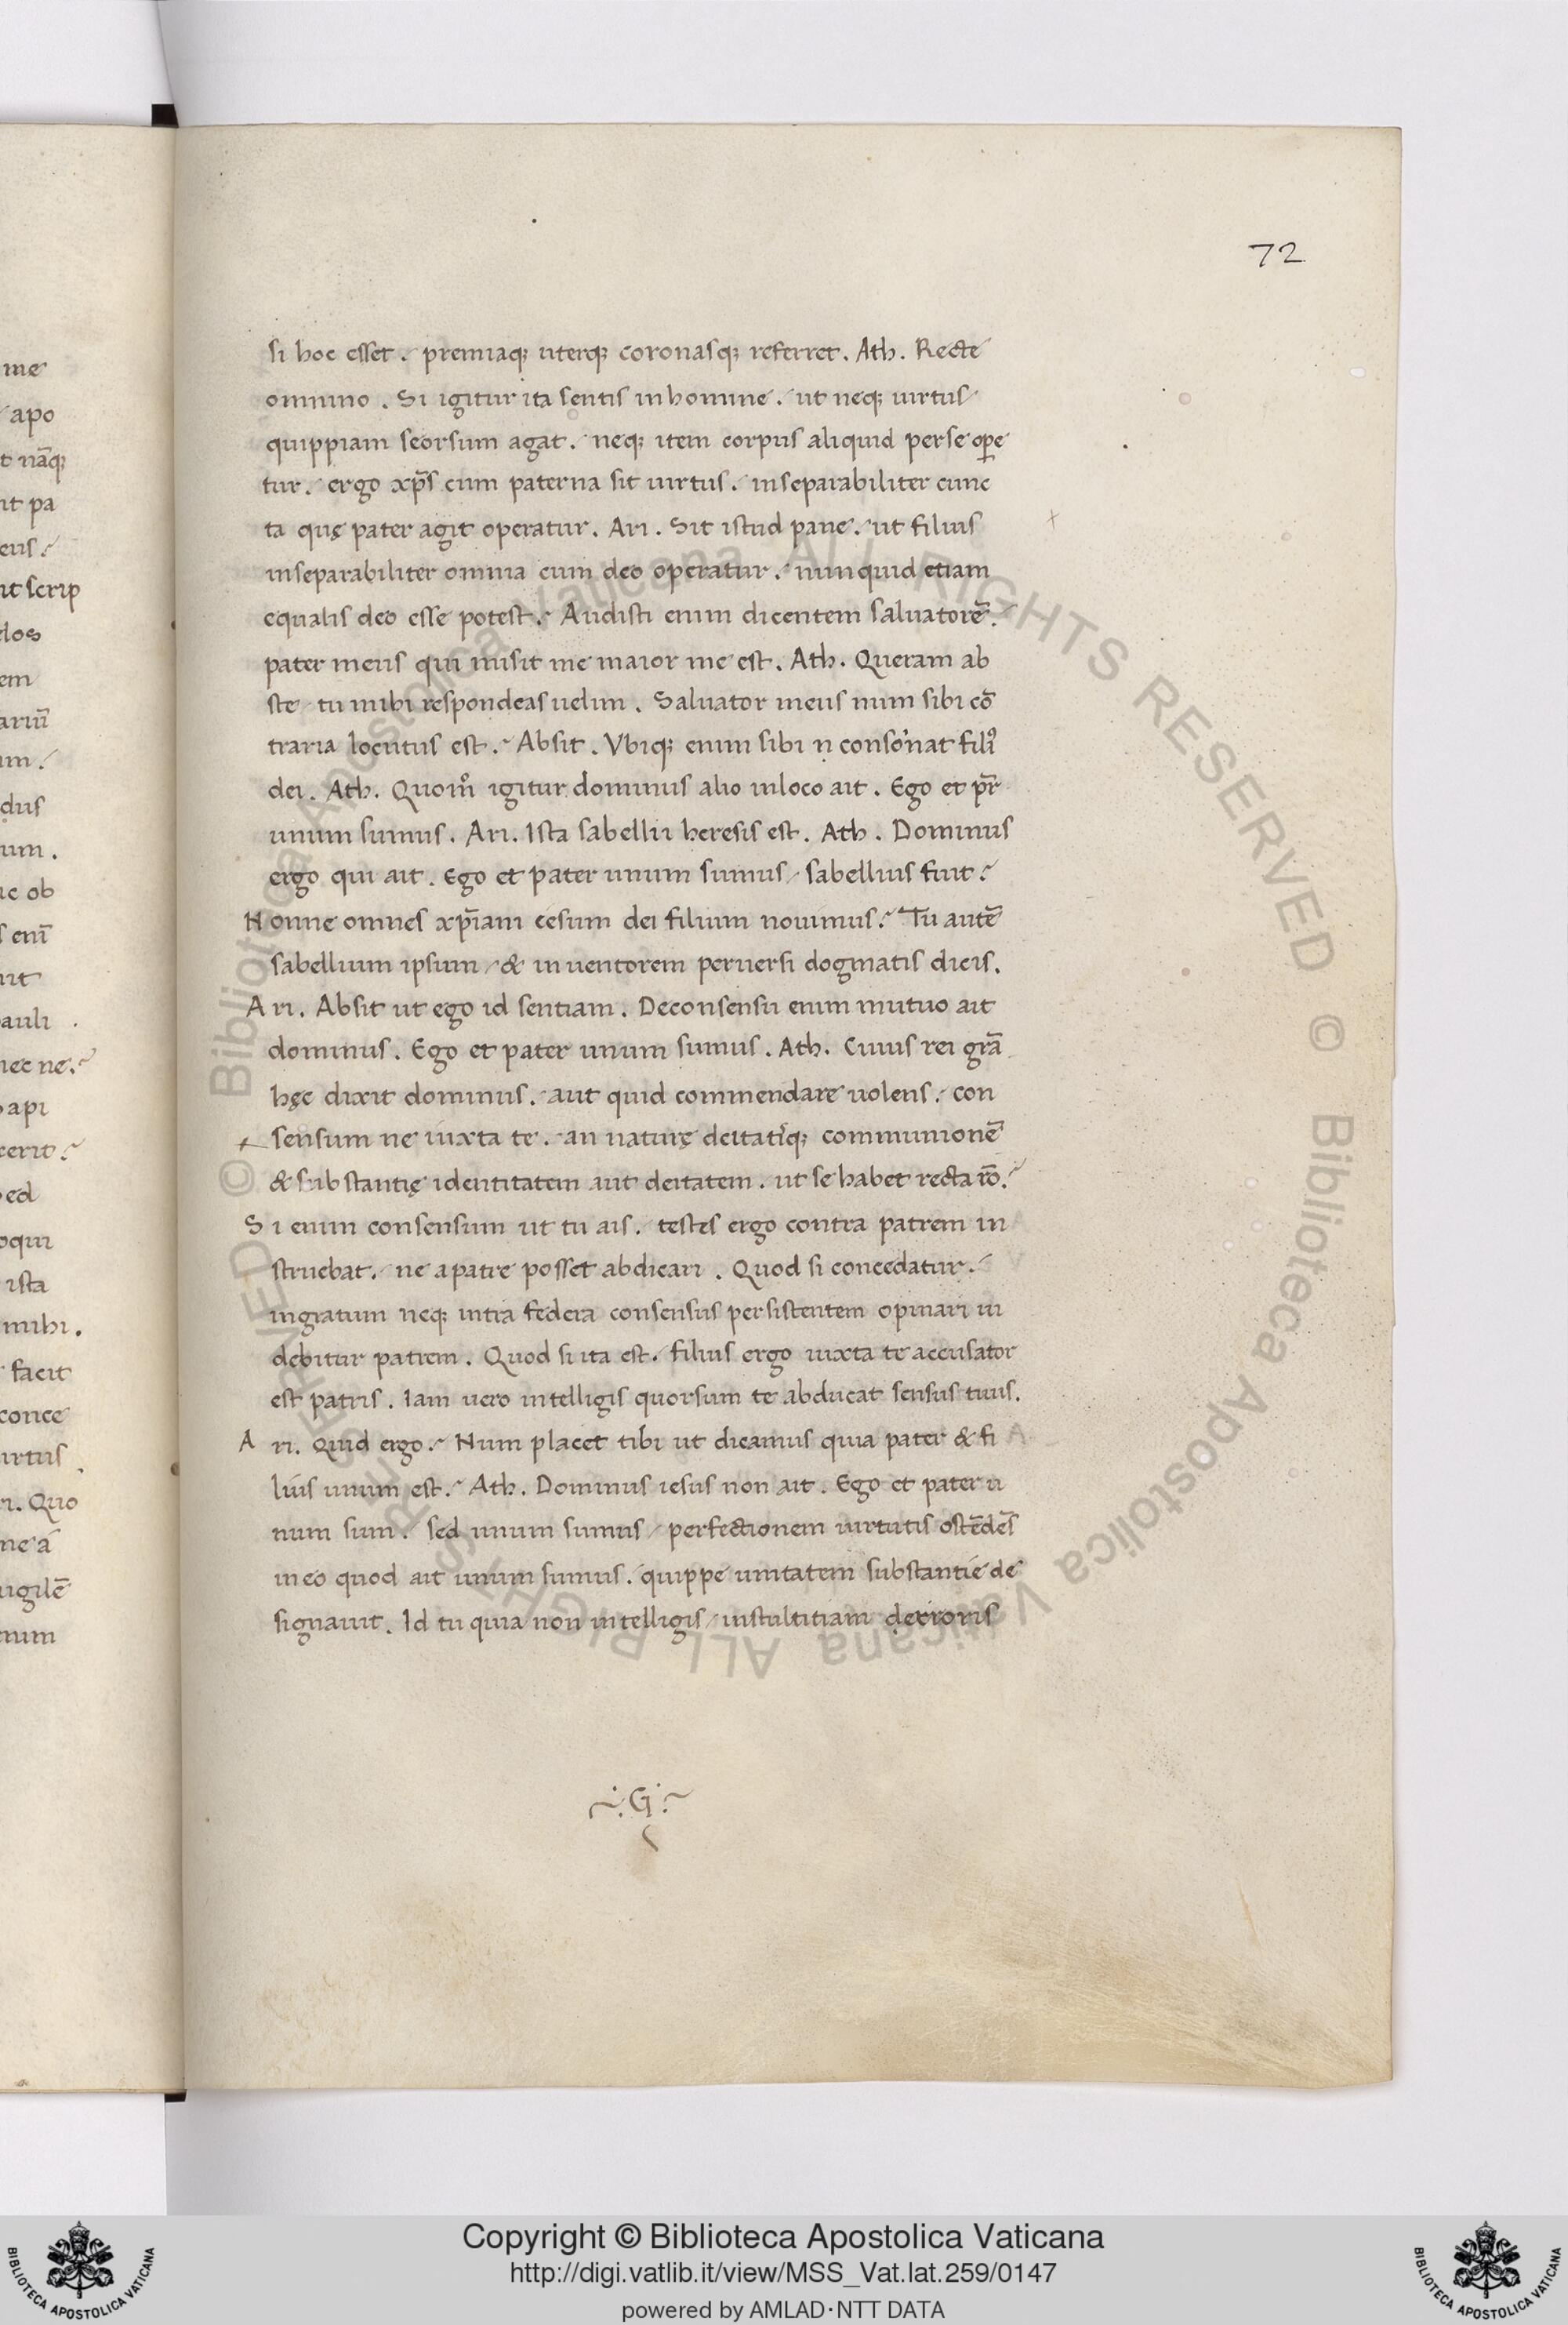 72
si hoc esset. premiaq; uterq; coronasq; referret. Ath. Recte
omnino. Si igitur ita sentis in homine. ut neq; uirtus
quippiam seorsum agat. neq; item corpus aliquid per se ope
tur. ergo xp̄s cum paterna sit uirtus. inseparabiliter cunc
ta quę pater agit operatur. Ari. Sit istud pane. ut filius
inseparabiliter omnia cum deo operatur. nunquid etiam
equalis deo esse potest? Audisti enim dicentem saluatorē.
pater meus qui misit me maior me est. Ath. Queram ab
ste tu mihi respondeas uelim. Saluator meus num sibi cō
traria locutus est? Absit. Vbiq; enim sibi consonat
dei. Ath. Quom̊ igitur dominus alio in loco ait. Ego et pr̄
unum sumus. Ari. Ista sabellii heresis est. Ath. Dominus
ergo qui ait. Ego et pater unum sumus / sabellius fuit?
Nonne omnes xp̄iani cesum dei filium nouimus? Tu autē
sabellium ipsum / & inuentorem peruersi dogmatis dicis.
Ari. Absit ut ego id sentiam. De consensu enim mutuo ait
dominus. Ego et pater unum sumus. Ath. Cuius rei grā
hęc dixit dominus. aut quid commendare uolens. con
sensum ne iuxta te. an naturę deitatisq; communionē
& substantię identitatem aut deitatem. ut se habet recta rō?
Si enim consensum ut tu ais. testes ergo contra patrem in
struebat. ne a patre posset abdicari. Quod si concedatur.
ingratum neq; intra federa consensus persistentem opinari ui
debitur patrem. Quod si ita est. filius ergo iuxta te accusator
est patris. Iam uero intelligis quorsum te abducat sensus tuus.
Ari. Quid ergo? Num placet tibi ut dicamus quia pater & fi
lius unum est? Ath. Dominus iesus non ait. Ego et pater u
num sum. sed unum sumus / perfectionem uirtutis ostēdēs
in eo quod ait unum sumus. quippe unitatem substantie de
signauit. Id tu quia non intelligis / in stultitiam deterioris
G
me
apo
t nāq;
it pa
eus
it scrip
dos
em
ariū
um
dus
um.
ic ob
s eni
uit
pauli
nec ne?
api
cerit?
ed
oqui
ista
mihi.
facit
conce
irtus
ri. Quo
ne á
uigilē
num
© Biblioteca Apostolica Vaticana ALL RIGHTS RESERVED © Biblioteca Apostolica Vaticana ALL RIGHTS RESERVED
Copyright © Biblioteca Apostolica Vaticana
http://digi.vatlib.it/view/MSS_Vat.lat.259/0147
powered by AMLAD·NTT DATA
BIBLIOTECA APOSTOLICA VATICANA
BIBLIOTECA APOSTOLICA VATICANA